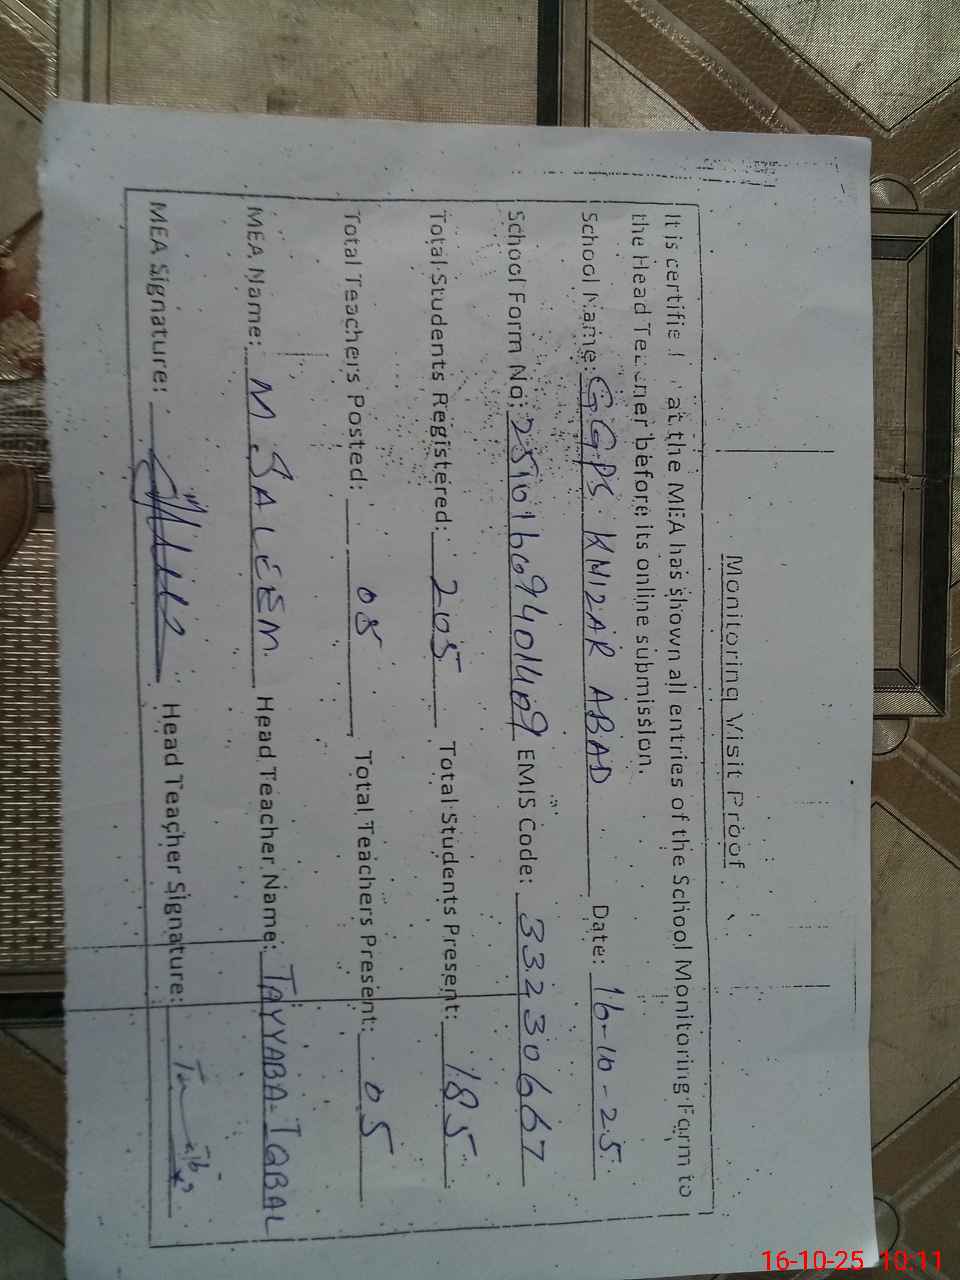 Monitoring Visit Proof
It is certified that the MEA has shown all entries of the School Monitoring Form to
the Head Teacher before its online submission.
School Name: GGPS KHIZAR ABAD Date: 16-10-25
School Form No: EMIS Code: 33230667
Total Students Registered: 205 Total Students Present: 185
Total Teachers Posted: 05 Total Teachers Present: 05
MEA Name: M SALEEM Head Teacher Name: TAYYABA IQBAL
MEA Signature: Head Teacher Signature:
16-10-25 10:11